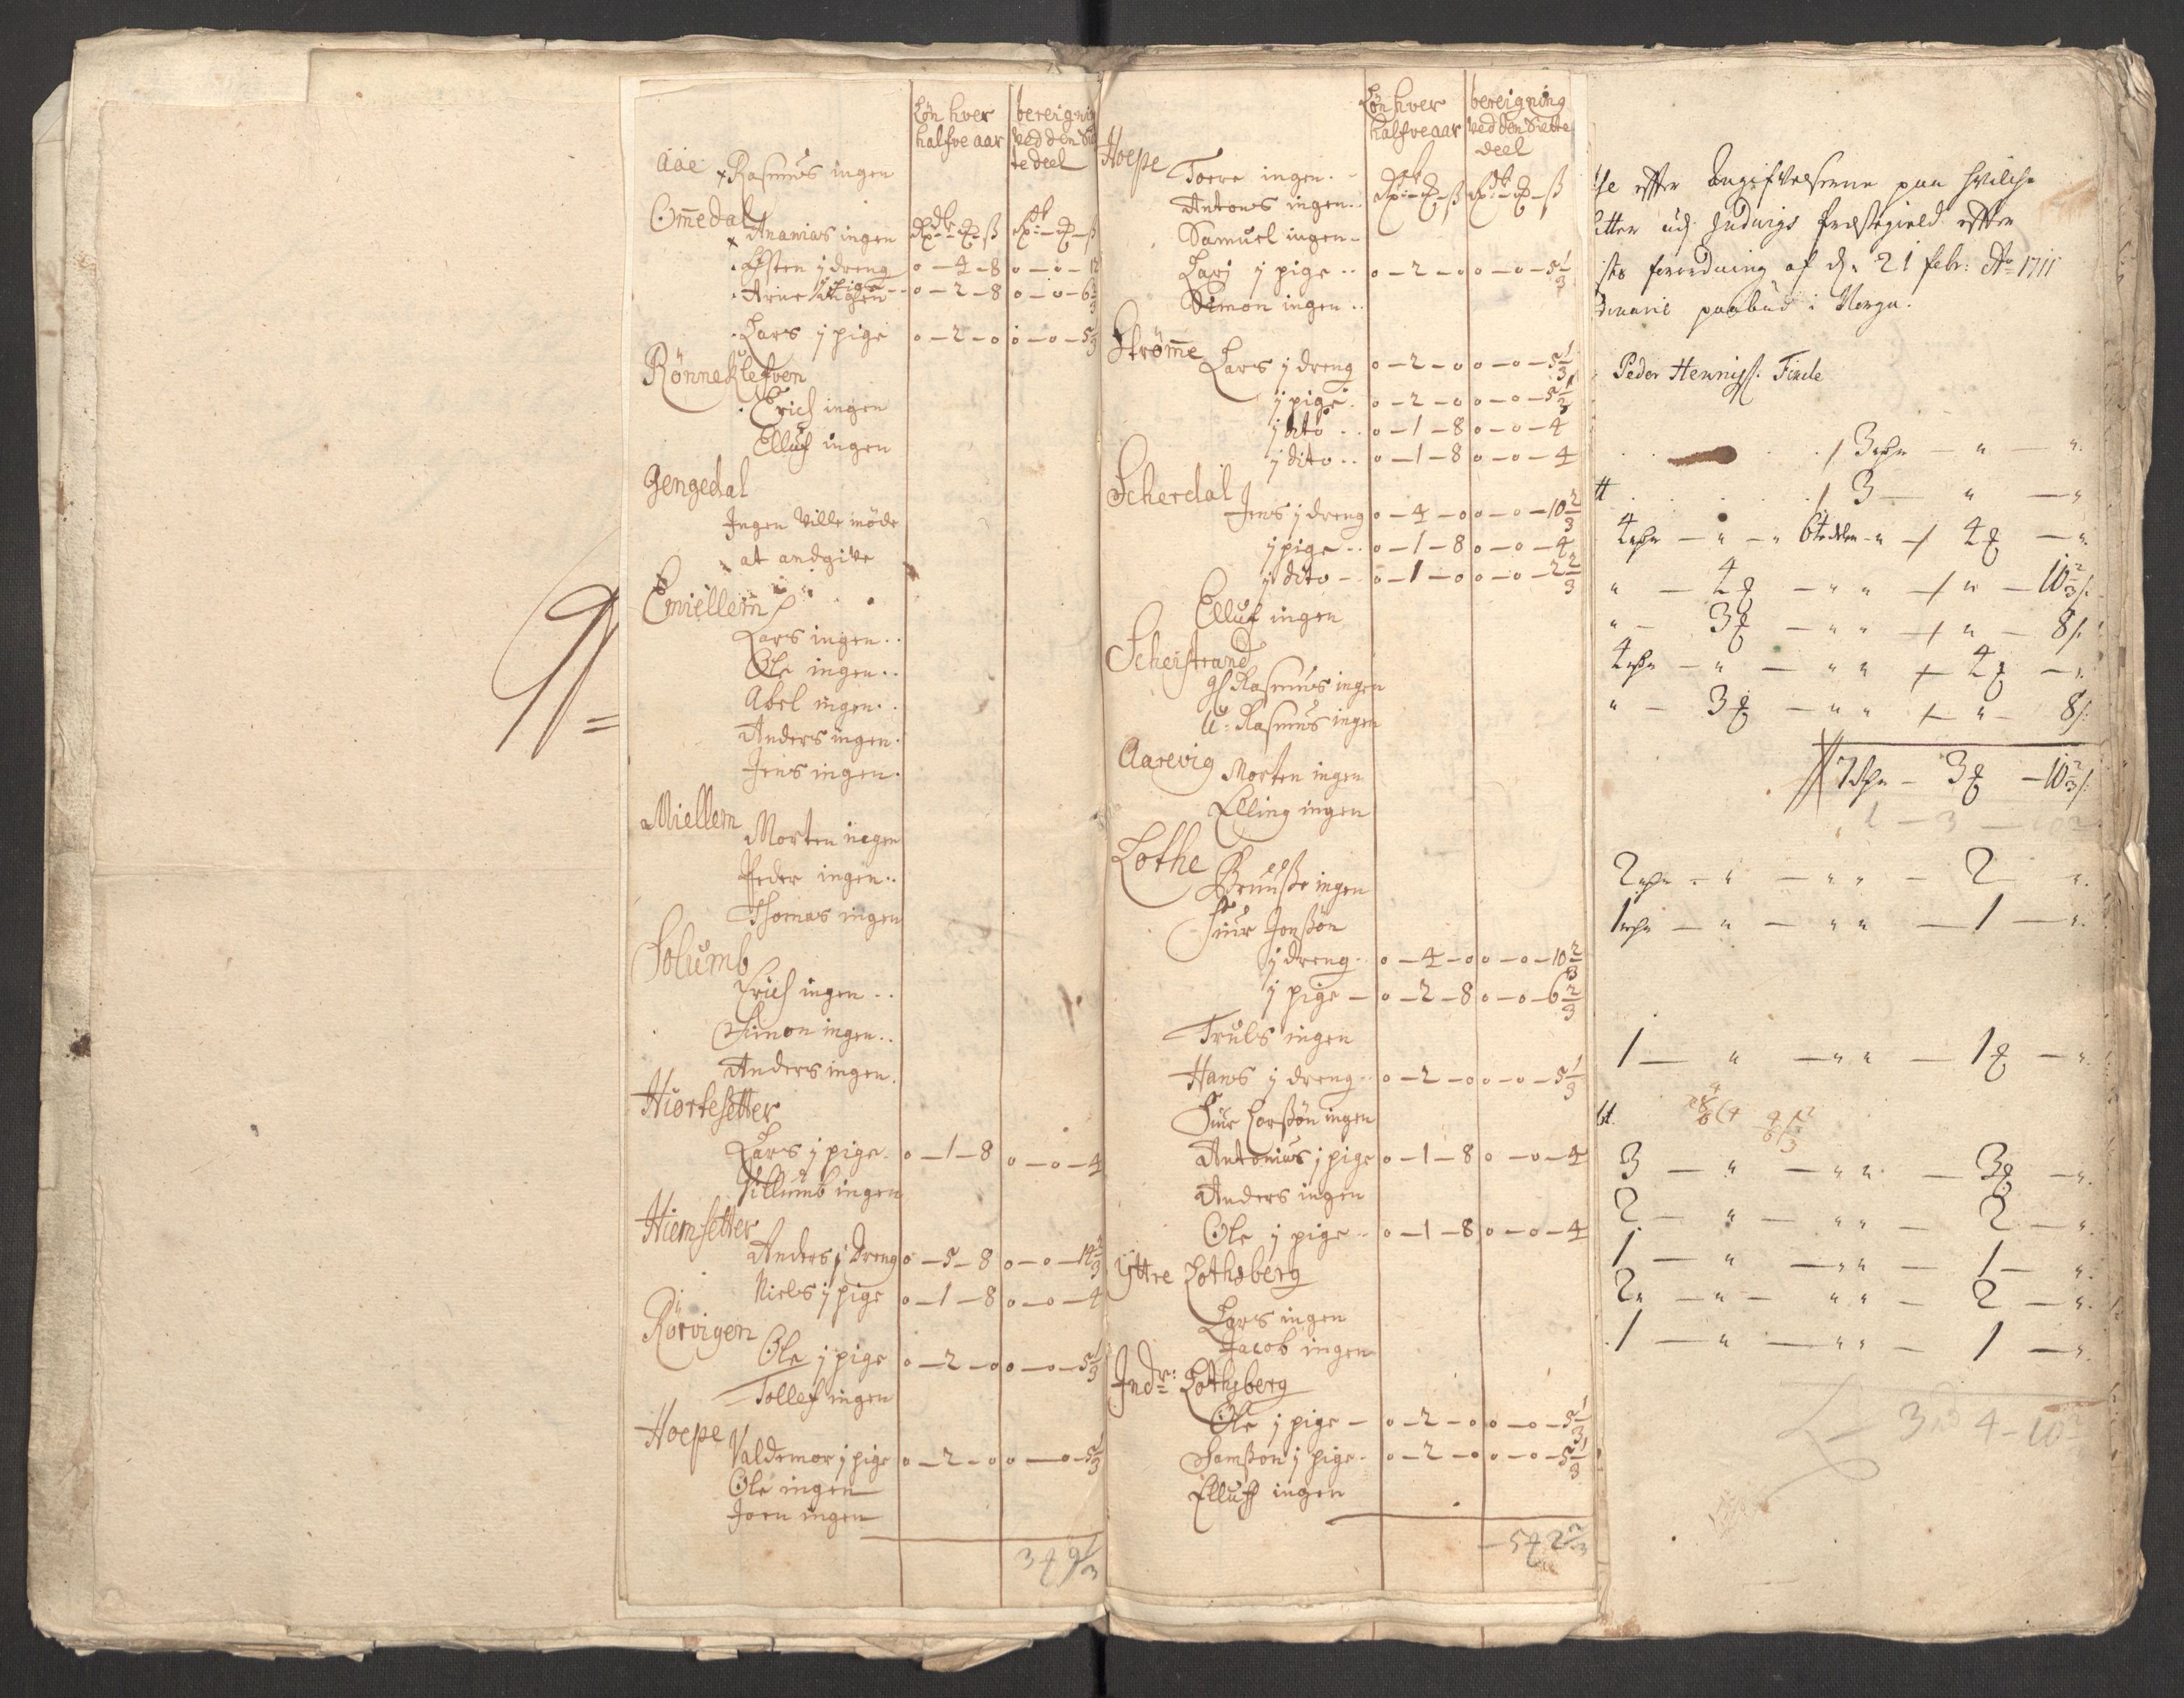 Løn hver bereigning
halfve aar ved den Siet
te deel
Aae Rasmus ingen
Ommedal
Ananias ingen
Østen j dreng 0 - 4 - 8 0 - 0 - 12
Arne j pige 0 - 2 - 8 0 - 0 - 6 2/3
Lars j pige 0 - 2 - 0 0 - 0 - 5 1/3
Rønneklefven
Erich ingen
Elluf ingen
Gengedal
Ingen Ville møde
at andgive
Emiellem
Lars ingen
Ole ingen
Abel ingen
Anders ingen
Jens ingen
Miellem
Morten ingen
Peder ingen
Thomas ingen
Solumb
Erich ingen
Simon ingen
Anders ingen
Hiortesetter
Lars j pige 0 - 1 - 8 0 - 0 - 4
Villumb ingen
Hiemsetter
Anders j dreng 0 - 5 - 8 0 - 0 - 14 2/3
Niels j pige 0 - 1 - 8 0 - 0 - 4
Rørvigen
Ole j pige 0 - 2 - 0 0 - 0 - 5 1/3
Tollef ingen
Hoepe
Valdemor j pige 0 - 2 - 0 0 - 0 - 5 1/3
Ole ingen
Joen ingen
3 9 1/3
Løn hver bereigning
halfve aar ved den Siette
deel
Hoepe
Toere ingen
Antons ingen
Samuel ingen
Larj j pige 0 - 2 - 0 0 - 0 - 5 1/3
Simon ingen
Strømme
Lars j dreng 0 - 2 - 0 0 - 0 - 5 1/3
j pige 0 - 2 - 0 0 - 0 - 5 1/3
j dito 0 - 1 - 8 0 - 0 - 4
j dito 0 - 1 - 8 0 - 0 - 4
Scherdal
Jens j dreng 0 - 4 - 0 0 - 0 - 10 2/3
j pige 0 - 1 - 8 0 - 0 - 4
j dito 0 - 1 - 0 0 - 0 - 2 2/3
Elluf ingen
Scheistrand
gl Rasmus ingen
u: Rasmus ingen
Aarevig
Morten ingen
Elling ingen
Lothe
Bruusse ingen
Siur Jonssøn
j dreng 0 - 4 - 0 0 - 0 - 10 2/3
j pige 0 - 2 - 8 0 - 0 - 6 2/3
Truls ingen
Hans j dreng 0 - 2 - 0 0 - 0 - 5 1/3
Siur Larssøn ingen
Antonius j pige 0 - 1 - 8 0 - 0 - 4
Anders ingen
Ole j pige 0 - 1 - 8 0 - 0 - 4
Yttre Lothsberg
Lars ingen
Jacob ingen
Indr: Lothsberg
Ole j pige 0 - 2 - 0 0 - 0 - 5 1/3
Samsson j pige 0 - 2 - 0 0 - 0 - 5 1/3
Elluff ingen
5 2 2/3
effter Angifvelserne paa hvilche
Indvigs Præstegield effter
forordning af d: 21 febr: Ao 1711
paabud i Norge.
Peder Henrichs. Finde
3
3
4 6te delen 4
4 10 2/3
3 8
4 4
3 8
7 - 3 - 10 2/3
2 - 2
1 - 1
1 - 1
3 - 3
2 - 2
1 - 1
2 - 2
1 - 1
3 4 - 10 2/3